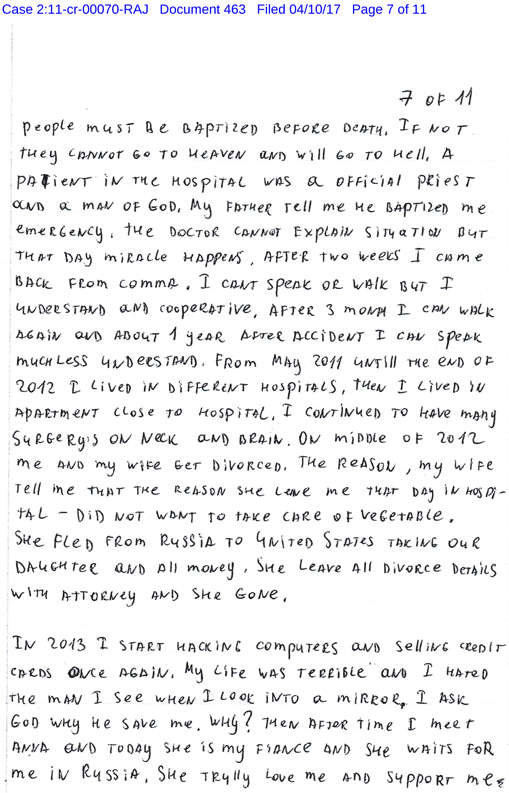 Case 2:11-cr-00070-RAJ Document 463 Filed 04/10/17 Page 7 of 11
7 OF 11
people must Be BAPTIZED BEFORE DEATH. IF NOT
they CANNOT GO TO HEAVEN AND will GO TO Hell. A
PATIENT IN THE HOSPITAL WAS a OFFICIAL PRIEST
AND a MAN OF GOD. My FATHER TELL me HE BAPTIZED me
emeRGENCY. the DOCTOR CANNOT EXPLAIN SITUATION BUT
THAT DAY miRACLE HAPPENS. AFTER TWO WEEKS I CAME
BACK FROM COMMA. I CANT SPEAK OR WALK BUT I
UNDERSTAND AND COOPERATIVE. AFTER 3 MONTH I CAN WALK
AGAIN AND ABOUT 1 YEAR AFTER ACCIDENT I CAN SPEAK
much LESS UNDERSTAND. FROM MAY 2011 UNTILL THE END OF
2012 I LIVED IN DIFFERENT HOSPITALS, THEN I LIVED IN
APARTMENT CLOSE TO HOSPITAL. I CONTINUED TO HAVE MANY
SURGERY'S ON NECK AND BRAIN. ON MIDDLE OF 2012
me AND my WIFE GET DIVORCED. THE REASON, my WIFE
TELL me THAT THE REASON SHE LEAVE me THAT DAY IN HOSPI-
TAL - DID NOT WANT TO TAKE CARE OF VEGETABLE.
SHE FLED FROM RUSSIA TO UNITED STATES TAKING OUR
DAUGHTER AND All money. SHE LEAVE All DIVORCE DETAILS
WITH ATTORNEY AND SHE GONE.
IN 2013 I START HACKING COMPUTERS AND SELLING CREDIT
CARDS ONCE AGAIN. My LIFE WAS TERRIBLE AND I HATED
THE MAN I SEE WHEN I LOOK INTO a MIRROR. I ASK
GOD WHY HE SAVE me. WHY? THEN AFTER TIME I meet
ANNA AND TODAY SHE IS my FIANCE AND SHE WAITS FOR
me IN RUSSIA. SHE TRULLY LOVE me AND SUPPORT me.